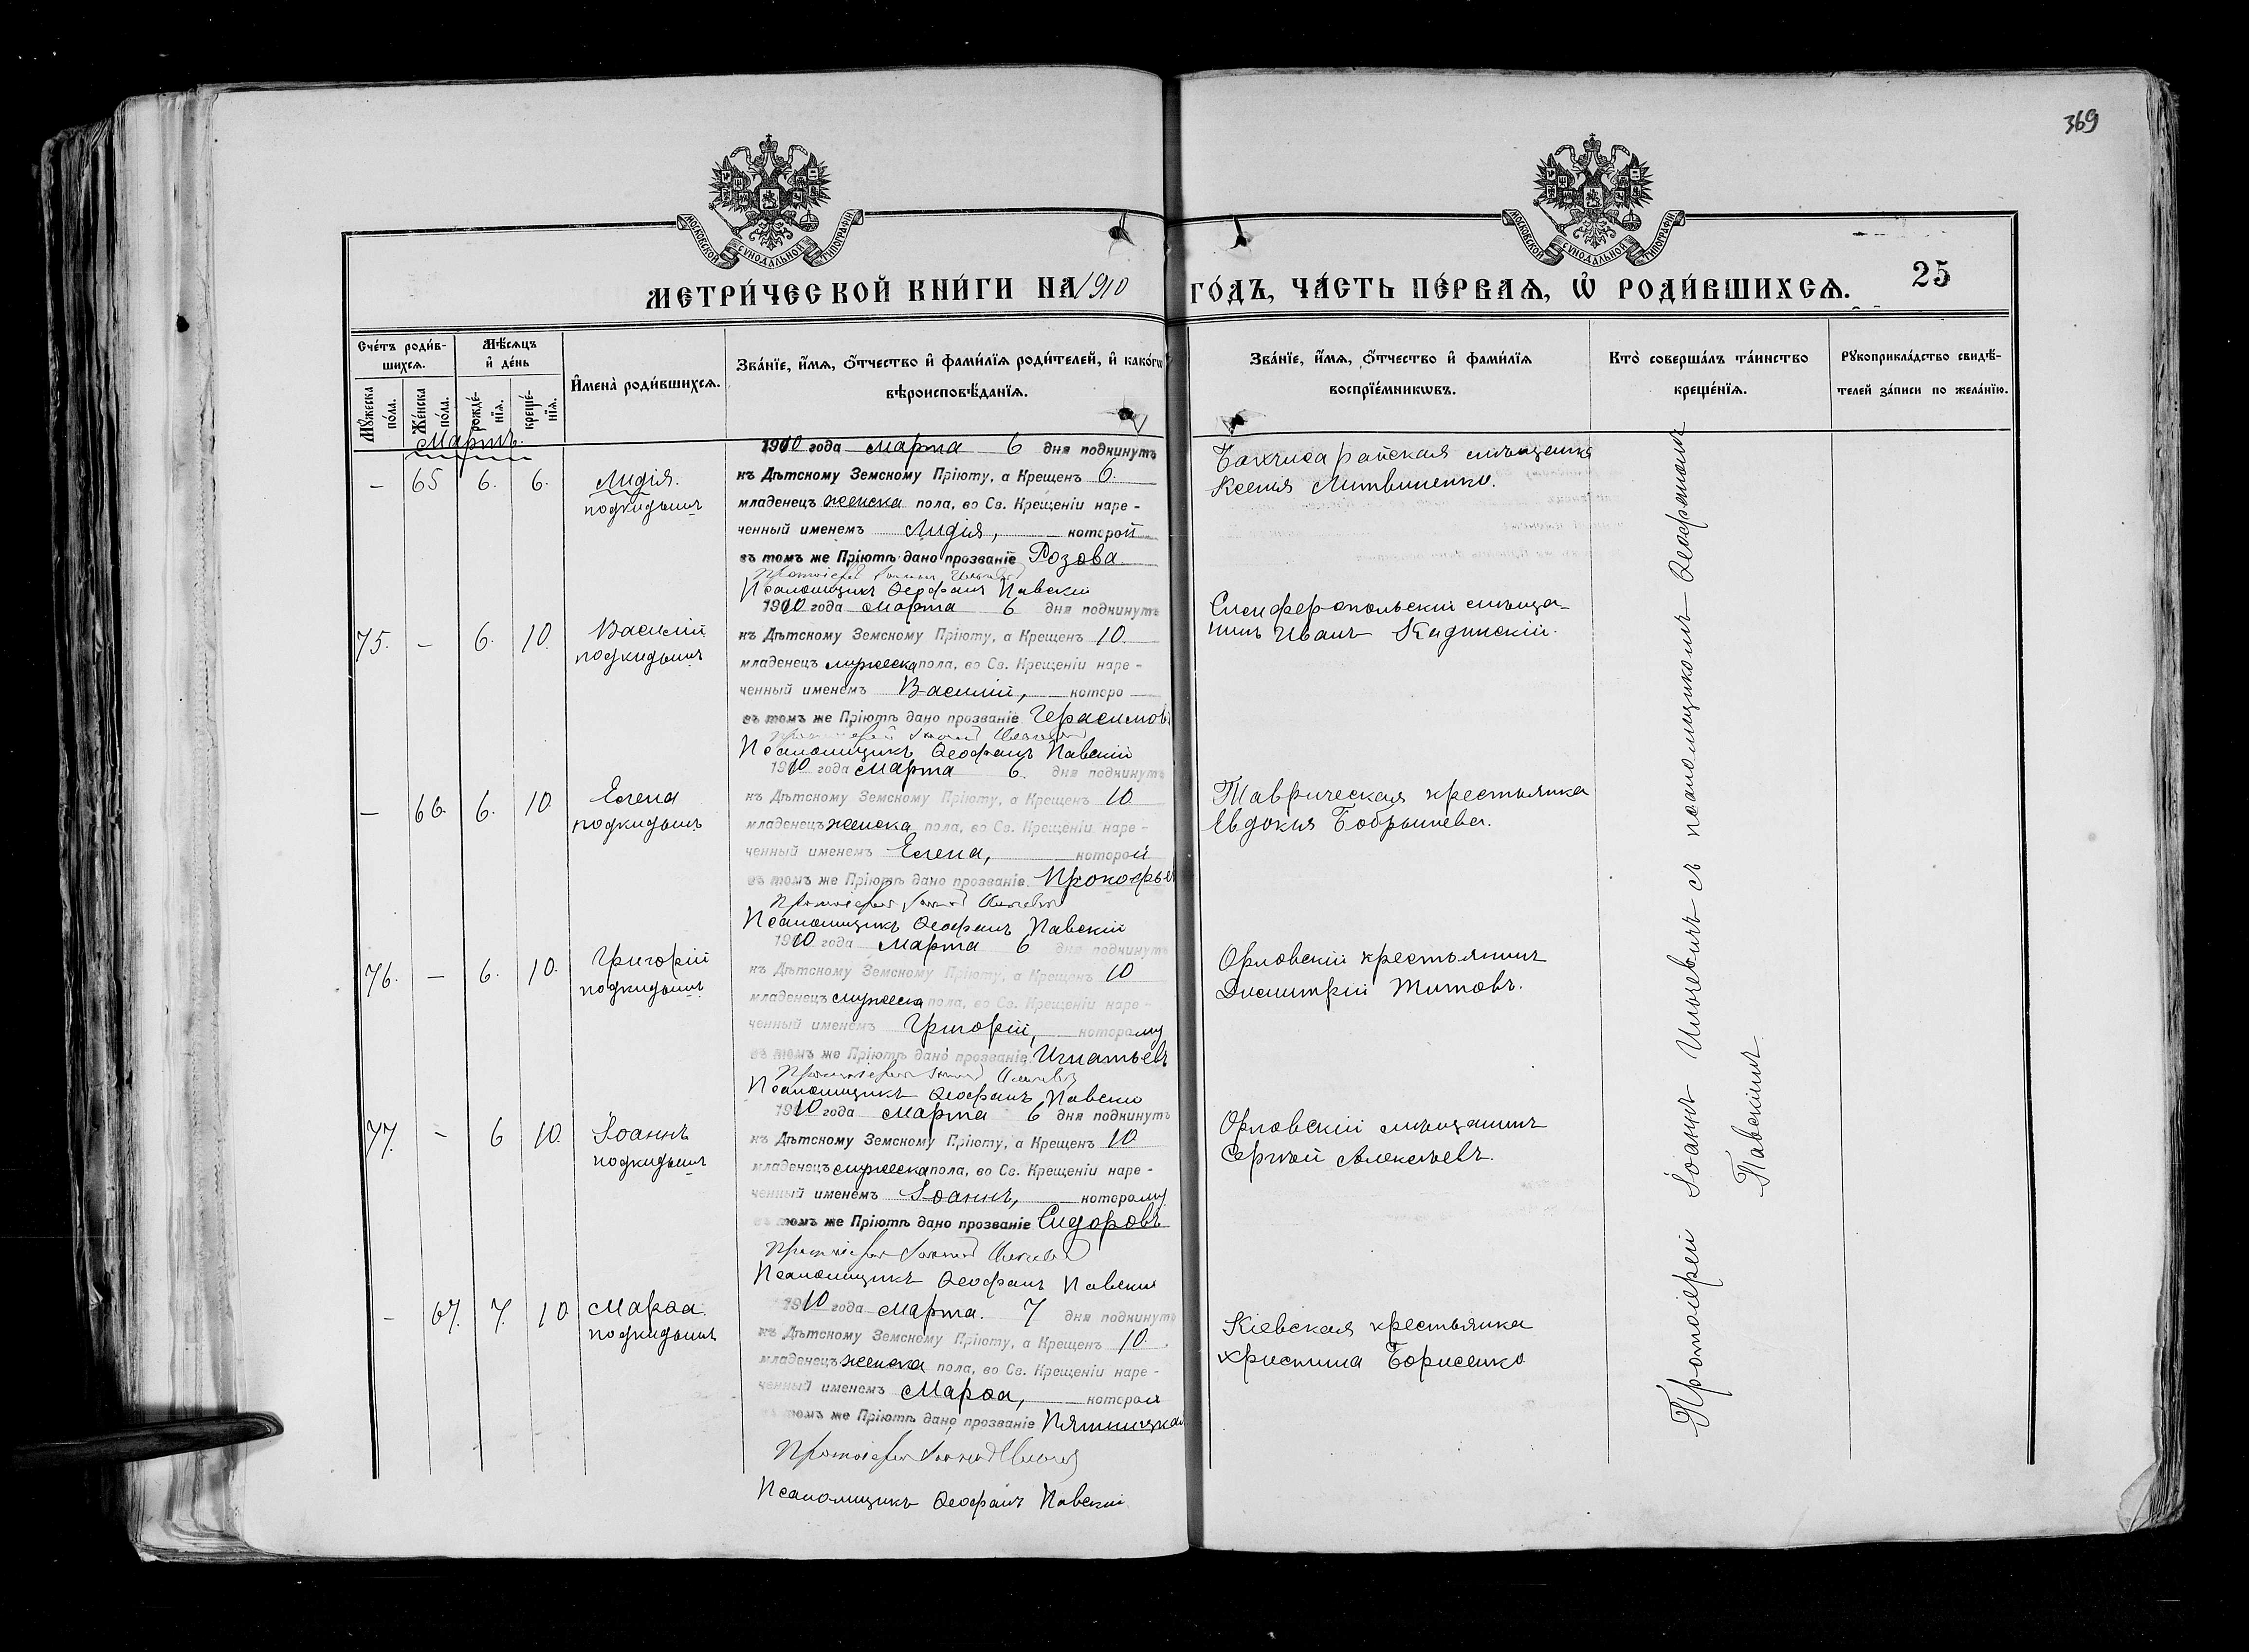 369
МОСКОВСКОЙ СѴНОДАЛЬНОЙ ТИПОГРАФІИ
МОСКОВСКОЙ СѴНОДАЛЬНОЙ ТИПОГРАФІИ
МЕТРИ́ЧЕСКОЙ КНИ́ГИ НА 1910 ГО́ДЪ, ЧА́СТЬ ПЕ́РВАѦ, Ѡ҆ РОДИ́ВШИХСѦ. 25
Сче́тъ роди́в-
шихсѧ.
Мꙋжеска по́ла.
Же́нска по́ла.
Мѣ́сѧцъ
и҆ де́нь
рожде́-
нїѧ.
креще́-
нїѧ.
И҆мена̀ роди́вшихсѧ.
Зва́нїе, и҆́мѧ, ѻ҆́тчество и҆ фами́лїѧ роди́телей, и҆ како́гѡ
вѣроисповѣ́данїѧ.
Зва́нїе, и҆́мѧ, ѻ҆́тчество и҆ фами́лїѧ
воспрїе́мникѡвъ.
Кто̀ соверша́лъ та́инство
креще́нїѧ.
Рꙋкоприкла́дство свидѣ́-
телей за́писи по жела́нїю.
Мартъ.
– 65 6. 6. Лидія.
подкидышъ
1910 года Марта 6 дня подкинутъ
къ Дѣтскому Земскому Пріюту, а Крещенъ 6.
младенецъ женска пола, во Св. Крещеніи наре-
ченный именемъ Лидія, которой
въ томъ же Пріютѣ дано прозваніе Розова
Протоіерей Іоаннъ Ильчевичъ
Псаломщикъ Ѳеофанъ Павскій
Бахчисарайская мѣщанка
Ксенія Литвиненко.
75. – 6. 10. Василій
подкидышъ
1910 года Марта 6 дня подкинутъ
къ Дѣтскому Земскому Пріюту, а Крещенъ 10.
младенецъ мужеска пола, во Св. Крещеніи наре-
ченный именемъ Василій, которо
въ томъ же Пріютѣ дано прозваніе Герасимовъ
Псаломщикъ Ѳеофанъ Павскій
Симферопольскій мѣща-
нинъ Иванъ
– 66. 6. 10 Елена
подкидышъ
1910 года Марта 6. дня подкинутъ
къ Дѣтскому Земскому Пріюту, а Крещенъ 10
младенецъ женска пола, во Св. Крещеніи наре-
ченный именемъ Елена, которой
въ томъ же Пріютѣ дано прозваніе Прокофьев
Псаломщикъ Ѳеофанъ Павскій
Таврическая крестьянка
Евдокія Бобрышева.
76. – 6. 10. Григорій
подкидышъ
1910 года Марта 6 дня подкинутъ
къ Дѣтскому Земскому Пріюту, а Крещенъ 10
младенецъ мужеска пола, во Св. Крещеніи наре-
ченный именемъ Григорій, которому
въ томъ же Пріютѣ дано прозваніе Игнатьевъ
Псаломщикъ Ѳеофанъ Павскій
Орловскій крестьянинъ
Димитрій Титовъ.
77. – 6 10. Іоаннъ
подкидышъ
1910 года Марта 6 дня подкинутъ
къ Дѣтскому Земскому Пріюту, а Крещенъ 10
младенецъ мужеска пола, во Св. Крещеніи наре-
ченный именемъ Іоаннъ, которому
въ томъ же Пріютѣ дано прозваніе Сидоровъ
Псаломщикъ Ѳеофанъ Павскій
Орловскій мѣщанинъ
Сергѣй Алексѣевъ.
– 67. 7. 10 Марѳа.
подкидышъ
1910 года Марта. 7 дня подкинутъ
къ Дѣтскому Земскому Пріюту, а Крещенъ 10.
младенецъ женска пола, во Св. Крещеніи наре-
ченный именемъ Марѳа, которой
въ томъ же Пріютѣ дано прозваніе Пятницкая
Псаломщикъ Ѳеофанъ Павскій
Кіевская крестьянка
Христина Борисенко
Протоіерей Іоаннъ Ильчевичъ съ псаломщикомъ Ѳеофаномъ
Павскимъ.